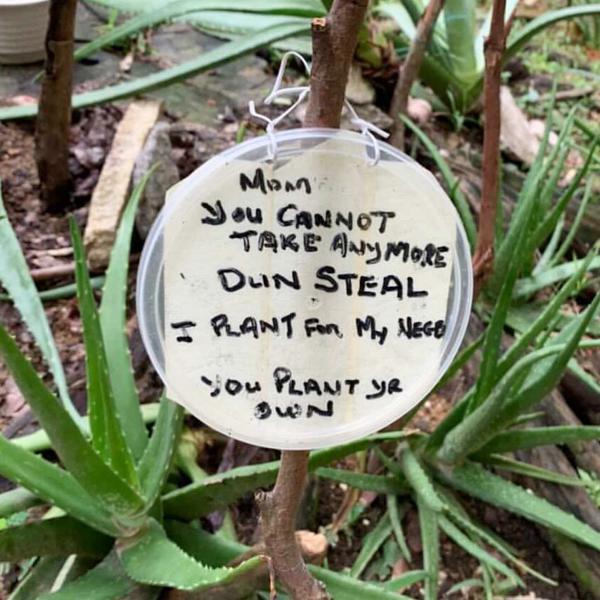 Mom
YOU CANNOT
TAKE ANYMORE
DUN STEAL
I PLANT FOR MY NEED
YOU PLANT YR
OWN